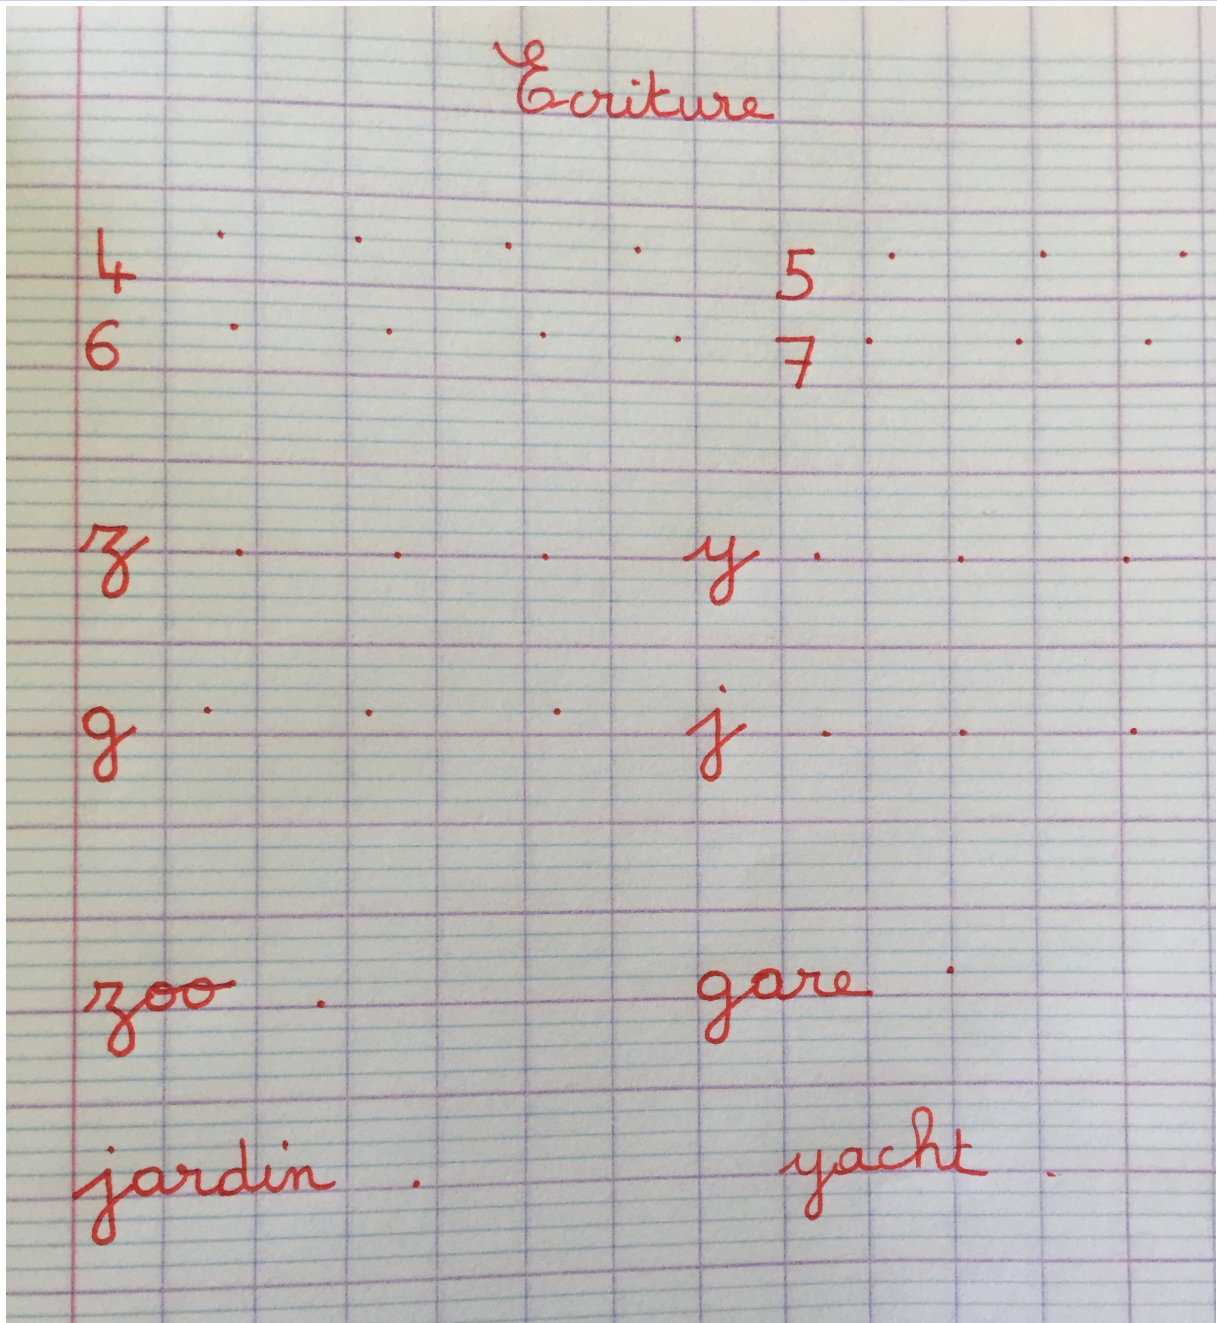 Ecriture
4 . . . . 5 . . .
6 . . . . 7 . . .
z . . . y . . .
g . . . j . . .
zoo . gare .
jardin . yacht .